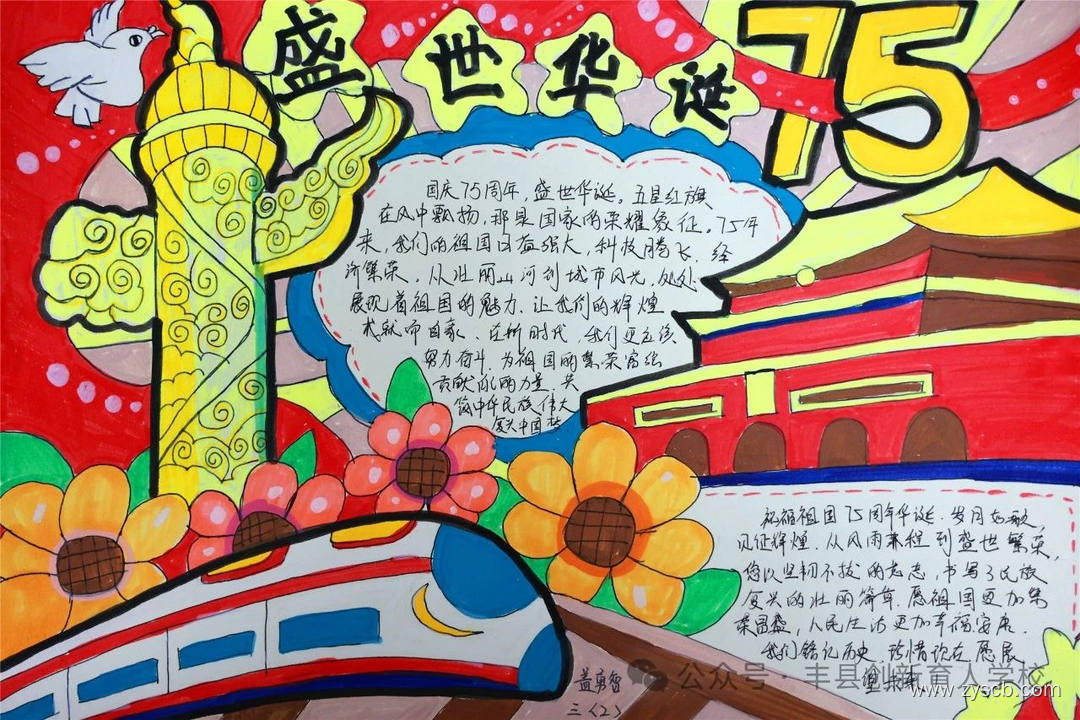 盛世华诞
75
国庆75周年，盛世华诞。五星红旗
在风中飘扬，那是国家的荣耀象征。75年
来，我们的祖国日益强大，科技腾飞，经
济繁荣，从壮丽山河到城市风光，处处
展现着祖国的魅力，让我们为辉煌
成就而自豪，在新时代，我们更应该
努力奋斗，为祖国的繁荣富强
贡献的力量，共
筑中华民族伟大
复兴中国梦
祝福祖国75周年华诞，岁月如歌，
见证辉煌，从风雨兼程到盛世繁荣，
您以坚韧不拔的意志，书写了民族
复兴的壮丽篇章，愿祖国更加繁
荣昌盛，人民生活更加幸福安康。
我们铭记历史，珍惜现在，愿展
望未来
三（2）
公众号·丰县创新育人学校
www.zyscb.com